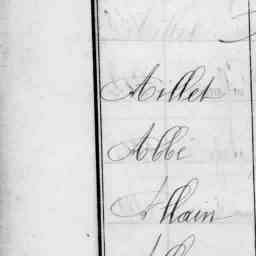 Aillet
Abbé
Allain